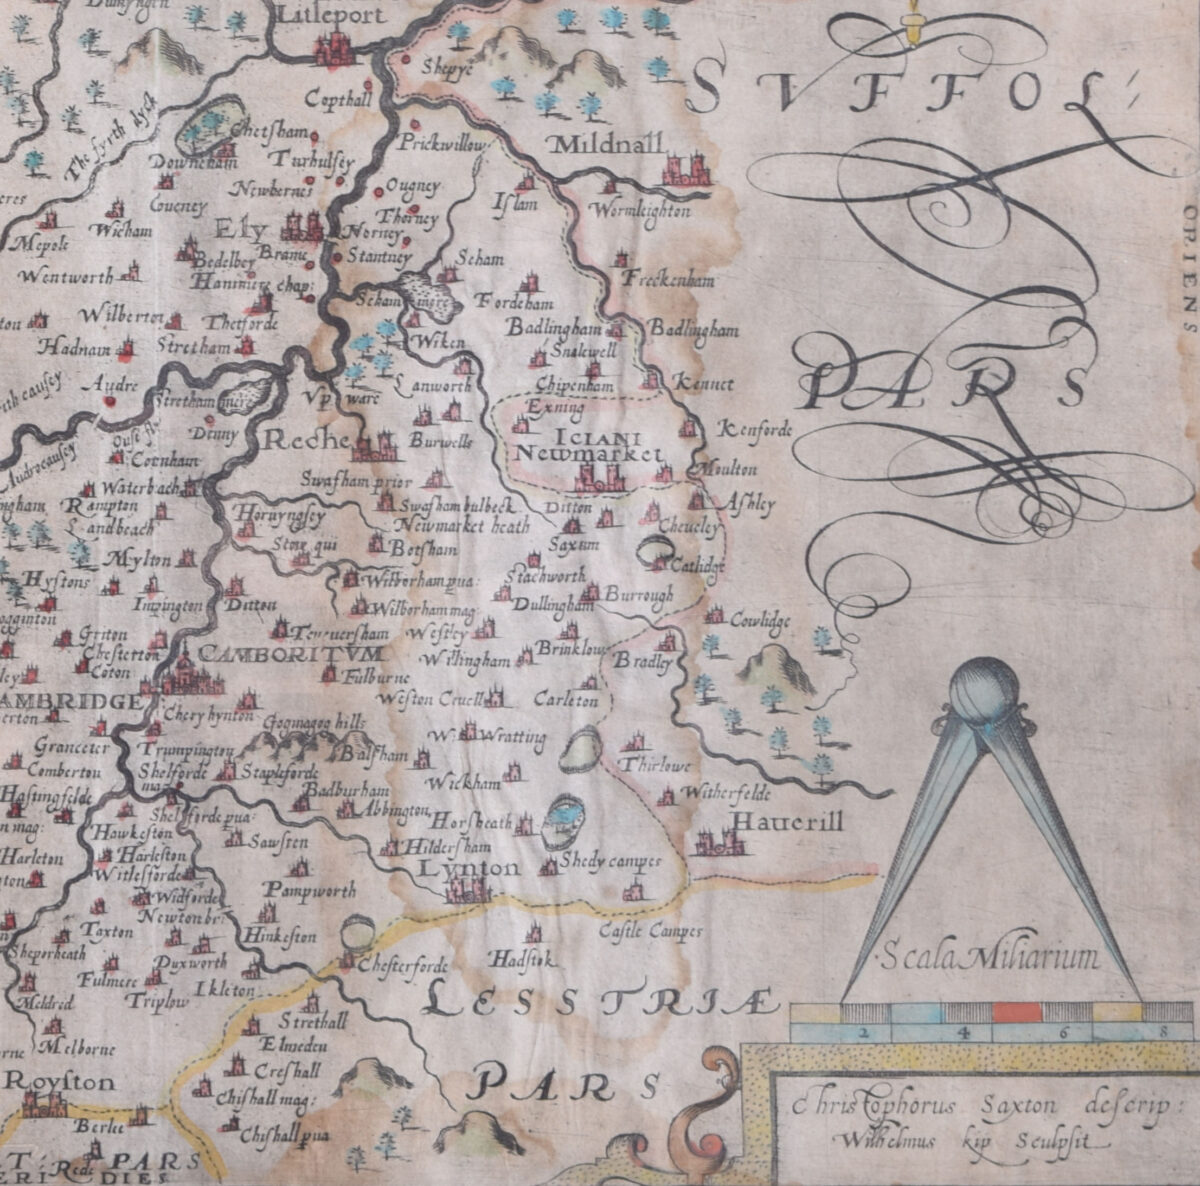 Litleport
Shepye
SVFFOL
Copthall
The fyrth dyck
Chetsham
Prickwillow
Mildnall
Downeham
Turbutsey
Newbernes
Ougney
Islam
Wormleighton
Coueney
Thorney
Wicham
Ely
Norney
Mepole
Bedelbey
Brame
Stantney
Scham
Freckenham
Wentworth
Hanmere chap:
Scham mere
Fordeham
ORIENS
Wilberton
Thetforde
Badlingham
Badlingham
Hadnam
Stretham
Wiken
Snalewell
PARS
Audre
Lanworth
Chipenham
Kennet
Stretham mere
Vp ware
Exning
Denny
Reche
Burwells
ICIANI
Kenforde
Audrecausey
Ouse fl.
Cotenham
Newmarket
Moulton
Waterbach
Swafham prior
Rampton
Swafham bulbeck
Ditton
Ashley
Landbeach
Horyngsey
Newmarket heath
Cheueley
Stow qui
Botsham
Saxum
Mylton
Catlidge
Hystons
Wilberham pua:
Stachworth
Impington
Ditton
Wilberham mag:
Dullingham
Burrough
Cowlidge
Griton
Westley
Chesterton
CAMBORITVM
Willingham
Brinklow
Bradley
Coton
Fulburne
AMBRIDGE
Weston Cruell
Carleton
Chery hynton
Gogmagog hills
Granceter
Trumpington
Balsham
W. Wratting
Thirlowe
Comberton
Shelforde mag:
Stapleforde
Wickham
Witherfelde
Haslingfelde
Badburham
Abbington
Horsheath
Hauerill
Shelforde pua:
Hawkeston
Sawsten
Hildersham
Harleton
Harleston
Lynton
Shedy campes
Witlesforde
Pampworth
Widforde
Newton br:
Castle Campes
Taxton
Hinkeston
Sheperheath
Chesterforde
Hadstok
Scala Miliarium
Fulmere
Duxworth
Ikleton
Meldred
Triplow
LESSTRIÆ
2 4 6 8
Strethall
Melborne
Elmeden
Royston
Creshall
PARS
Chishall mag:
Christophorus Saxton descrip:
Berlee
Chishall pua
Wilhelmus kip Sculpsit
Rede
PARS
DIES